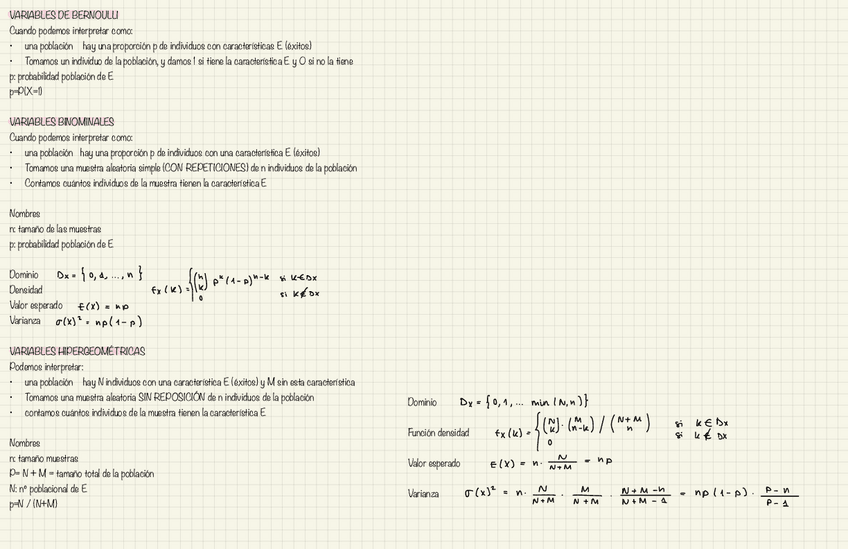 VARIABLES DE BERNOULLI
Cuando podemos interpretar como:
• una población hay una proporción p de individuos con características E (éxitos)
• Tomamos un individuo de la población, y damos 1 si tiene la característica E y 0 si no la tiene
p: probabilidad población de E
p=P(X=1)
VARIABLES BINOMINALES
Cuando podemos interpretar como:
• una población hay una proporción p de individuos con una característica E (éxitos)
• Tomamos una muestra aleatoria simple (CON REPETICIONES) de n individuos de la población
• Contamos cuántos individuos de la muestra tienen la característica E
Nombres
n: tamaño de las muestras
p: probabilidad población de E
Dominio Dx = { 0, 1, ..., n }
Densidad fx(k) = { (n k) p^k (1-p)^n-k si k∈Dx
0 si k∉Dx
Valor esperado E(X) = np
Varianza σ(X)² = np(1-p)
VARIABLES HIPERGEOMÉTRICAS
Podemos interpretar:
• una población hay N individuos con una característica E (éxitos) y M sin esta característica
• Tomamos una muestra aleatoria SIN REPOSICIÓN de n individuos de la población
• contamos cuántos individuos de la muestra tienen la característica E
Nombres
n: tamaño muestras
P= N + M = tamaño total de la población
N: nº poblacional de E
p=N / (N+M)
Dominio Dx = { 0, 1, ... min (N,n) }
Función densidad fx(k) = { (N k) · (M n-k) / (N+M n) si k∈Dx
0 si k∉Dx
Valor esperado E(X) = n · N/(N+M) = np
Varianza σ(x)² = n · N/(N+M) · M/(N+M) · (N+M-n)/(N+M-1) = np(1-p) · (P-n)/(P-1)